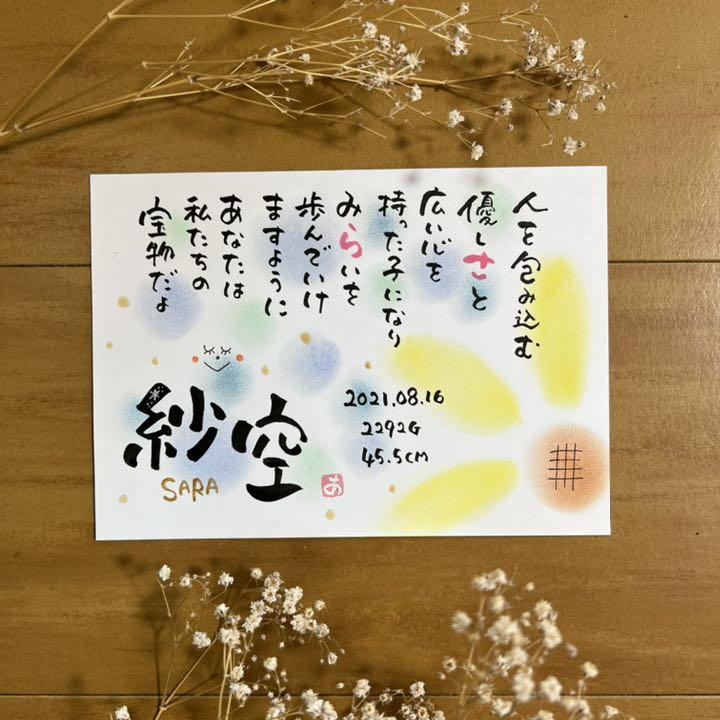 人を包み込む
優しさと
広い心を
持った子になり
みらいを
歩んでいけ
ますように
あなたは
私たちの
宝物だよ
紗空
SARA
2021.08.16
2292G
45.5CM
あ